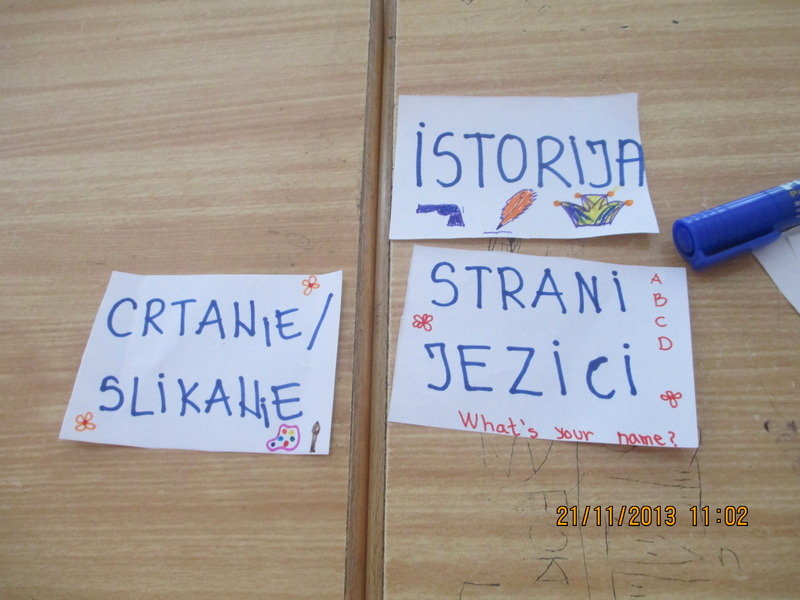 İSTORIJA
CRTANJE/
SLIKANJE
STRANI
JEZİCİ
A
B
C
D
What's your name?
21/11/2013 11:02